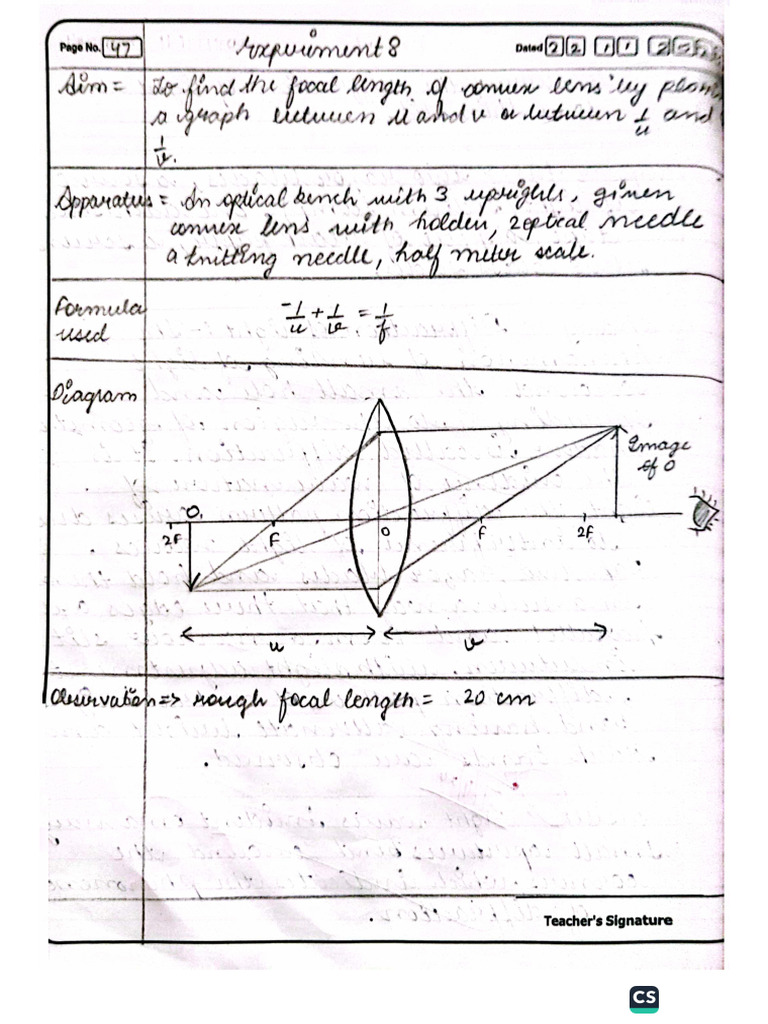 Page No. 47 Experiment 8 Dated 22 11
Aim = To find the focal length of convex lens by
a graph between u and v or between 1/u and
1/v.
Apparatus = An optical bench with 3 uprights, given
convex lens with holder, 2optical needle
a knitting needle, half meter scale.
Formula used
-1/u + 1/v = 1/f
Diagram
Image
of O
O,
2F F O F 2F
u v
Observation => rough focal length = 20 cm
Teacher's Signature
CS